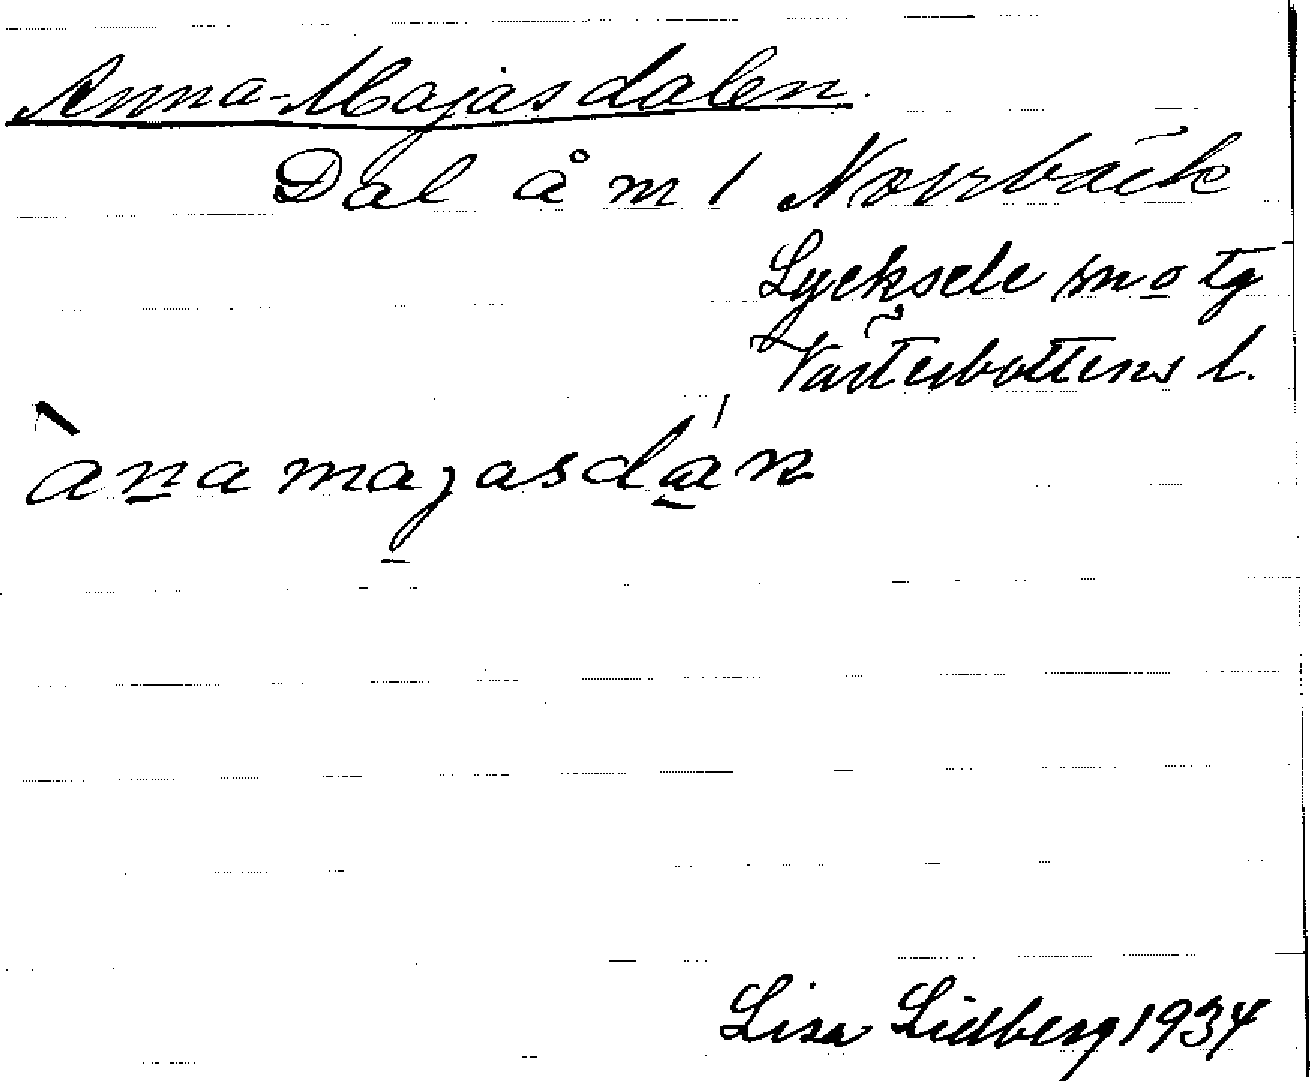 Anna-Majasdalen.
Dal å m 1 Norrbäck
Lycksele smotg
Västerbottens l.
àna majasdán
Lisa Lidberg 1934